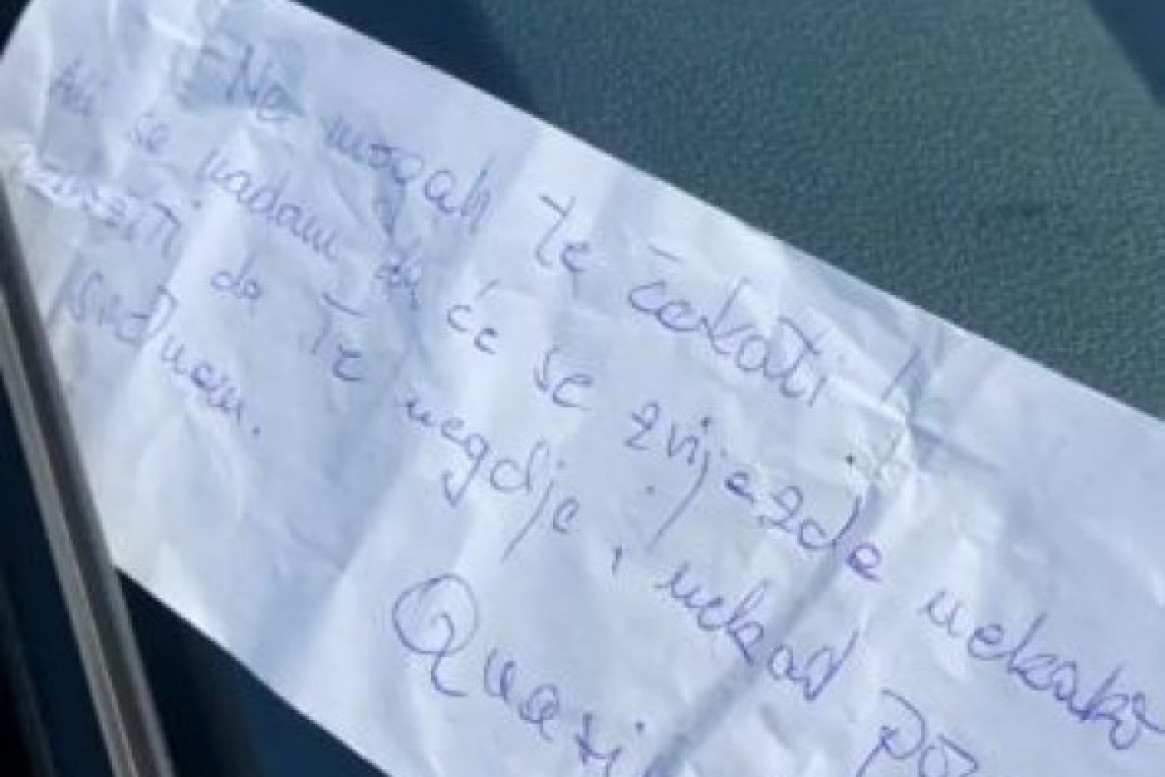 Ne mogah te čekati!
Ali se nadam da će se zvijezde nekako
da Te negdje, nekad po
sretnem.
Quasi